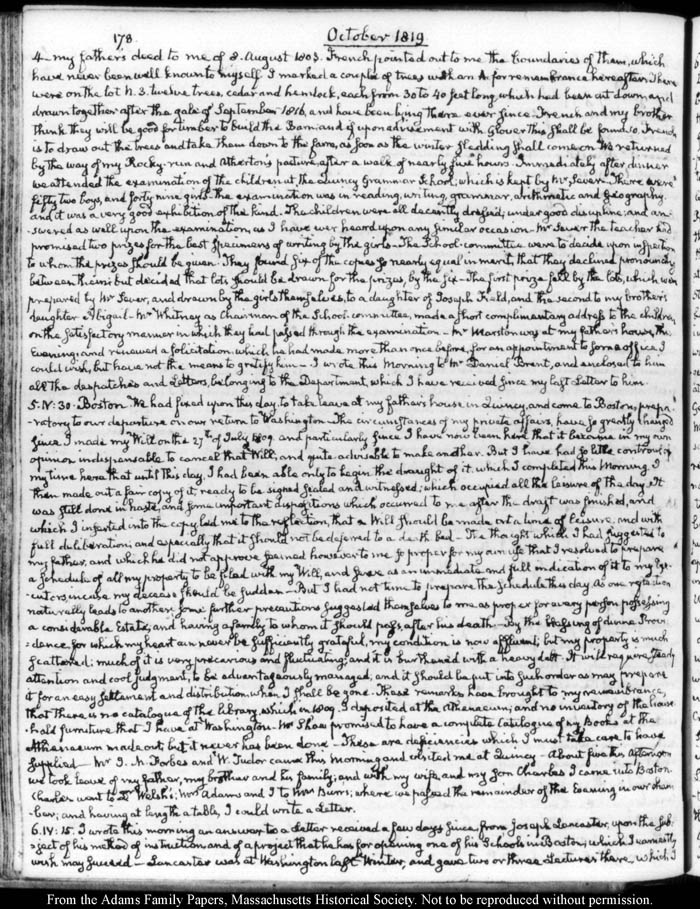 178 October 1819
4. my father's deed to me of 8. August 1803. French pointed out to me the boundaries of them, which
have never been well known to myself. I marked a couple of trees with an A. for remembrance hereafter. There
were on the lot N. 3. twelve trees, cedar and hemlock, each from 30 to 40 feet long, which had been cut down, and
drawn together after the gale of September 1816, and have been lying there ever since. French and my brother
think they will be good for timber to build the Barn; and if upon advisement with Glover this shall be found so, French
is to draw out the trees and take them down to the farm, as soon as the winter sledding shall come on. We returned
by the way of my Rocky-run and Atherton's pasture, after a walk of nearly five hours. Immediately after dinner
we attended the examination of the children at the Quincy Grammar School, which is kept by Mr. Sever. There were
fifty two boys, and forty nine girls. The examination was in reading, writing, grammar, arithmetic and Geography
and it was a very good exhibition of the kind. The children were all decently dressed; under good discipline; and an-
swered as well upon the examination, as I have ever heard upon any similar occasion. Mr Sever the teacher had
promised two prizes for the best specimens of writing by the girls. The School-committee were to decide upon inspection
to whom the prizes should be given. They found six of the copies so nearly equal in merit, that they declined pronouncing
between them: but decided that lots should be drawn for the prizes, by the six. The first prize fell by the lots, which were
prepared by Mr Sever, and drawn by the girls themselves, to a daughter of Joseph Field, and the second to my brother's
daughter Abigail. Mr Whitney as Chairman of the School committee, made a short complimentary address to the children,
on the satisfactory manner in which they had passed through the examination. Mr Marston was at my father's house, this
Evening; and renewed a solicitation, which he had made more than once before, for an appointment to some office. I
could wish, but have not the means to gratify him. I wrote this Morning to Mr Daniel Brent, and enclosed to him
all the despatches and Letters, belonging to the Department, which I have received since my last Letter to him.
5. IV: 30. Boston. We had fixed upon this day, to take leave at my father's house in Quincy, and come to Boston, prepa-
-ratory to our departure on our return to Washington. The circumstances of my private affairs, have so greatly changed
since I made my Will on the 27th of July 1809. and particularly since I have now been here that it became in my own
opinion indispensable to cancel that Will, and quite advisable to make another. But I have had so little controul of
my time here that until this day, I had been able only to begin the draught of it. which I completed this Morning. I
then made out a fair copy of it, ready to be signed sealed and witnessed; which occupied all the leisure of the day. It
was still done in haste, and some important dispositions which occurred to me after the draft was finished, and
which I inserted into the copy led me to the reflection, that a Will should be made at a time of leisure, and with
full deliberation; and especially that it should not be deferred to a death bed. The thought which I had suggested to
my father, and which he did not approve seemed however to me so proper for my own use that I resolved to prepare
a schedule of all my property to be filed with my Will, and serve as an immediate and full indication of it to my Exe-
-cutors, in case my decease should be sudden. But I had not time to prepare the Schedule this day. As one reflection
naturally leads to another some further precautions suggested themselves to me as proper for every person possessing
a considerable Estate, and having a family to whom it should pass, after his death. By the blessing of divine Provi-
-dence, for which my heart can never be sufficiently grateful, my condition is now affluent; but my property is much
scattered; much of it is very precarious and fluctuating; and it is burthened with a heavy debt. It will require steady
attention and cool judgment, to be advantageously managed; and it should be put into such order as may prepare
it for an easy settlement and distribution when I shall be gone. These remarks have brought to my remembrance,
that there is no catalogue of the library, which in 1809. I deposited at the Athenaeum; and no inventory of the house-
-hold furniture that I have at Washington. Mr Shaw promised to have a complete Catalogue of my Books at the
Athenaeum made out; but it never has been done. These are deficiencies which I must take care to have
supplied. Mr I. M. Forbes and W. Tudor came this Morning and visited me at Quincy. About five this Afternoon
we took leave of my father, my brother and his family; and with my wife, and my Son Charles I came into Boston.
Charles went to Dr Welsh's; Mrs Adams and I to Mrs Burr's; where we passed the remainder of the Evening in our cham-
-ber; and having at length a table, I could write a Letter.
6. IV: 15. I wrote this morning an answer to a Letter received a few days since from Joseph Lancaster, upon the sub-
-ject of his method of instruction and of a project that he has for opening one of his Schools in Boston; which I earnestly
wish may succeed. Lancaster was at Washington last Winter, and gave two or three Lectures there, which I
From the Adams Family Papers, Massachusetts Historical Society. Not to be reproduced without permission.